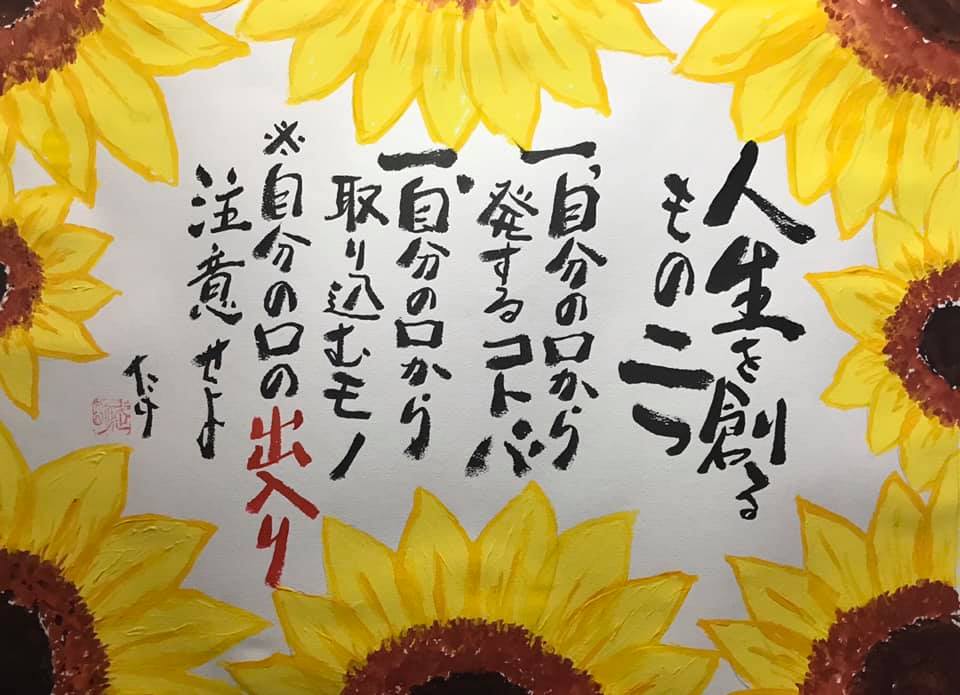 人生を創る
もの二つ
一、自分の口から
発するコトバ
一、自分の口から
取り込むモノ
※自分の口の出入り
注意せよ
たけ